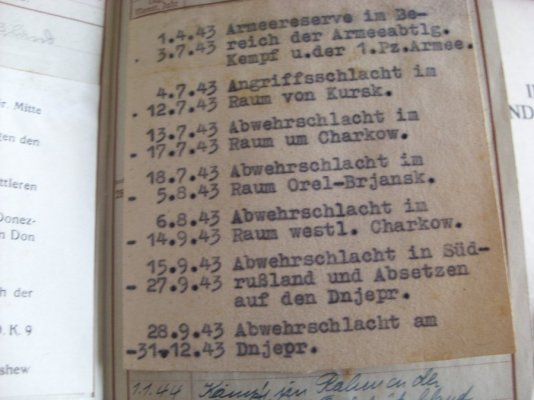 r. Mitte
gen den
ttleren
Donez-
n Don
ch der
D. K. 9
shew
1.4.43 Armeereserve im Be-
- 3.7.43 reich der Armeeabtlg.
Kempf u.der 1.Pz.Armee.
4.7.43 Angriffsschlacht im
- 12.7.43 Raum von Kursk.
13.7.43 Abwehrschlacht im
- 17.7.43 Raum um Charkow.
18.7.43 Abwehrschlacht im
- 5.8.43 Raum Orel-Brjansk.
6.8.43 Abwehrschlacht im
- 14.9.43 Raum westl. Charkow.
15.9.43 Abwehrschlacht in Süd-
- 27.9.43 rußland und Absetzen
auf den Dnjepr.
28.9.43 Abwehrschlacht am
-31.12.43 Dnjepr.
1.1.44 Kämpfe im Rahmen der
I
ND